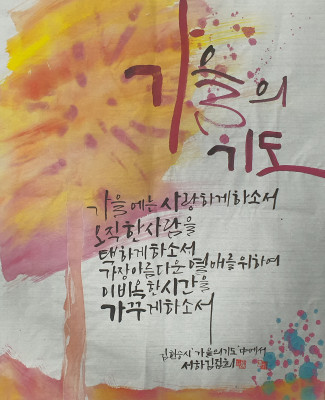 가을의
기도
가을에는 사랑하게하소서
오직한사람을
택하게하소서
가장아름다운 열매를위하여
이비옥한시간을
가꾸게하소서
김현승시 "가을의기도" 中에서